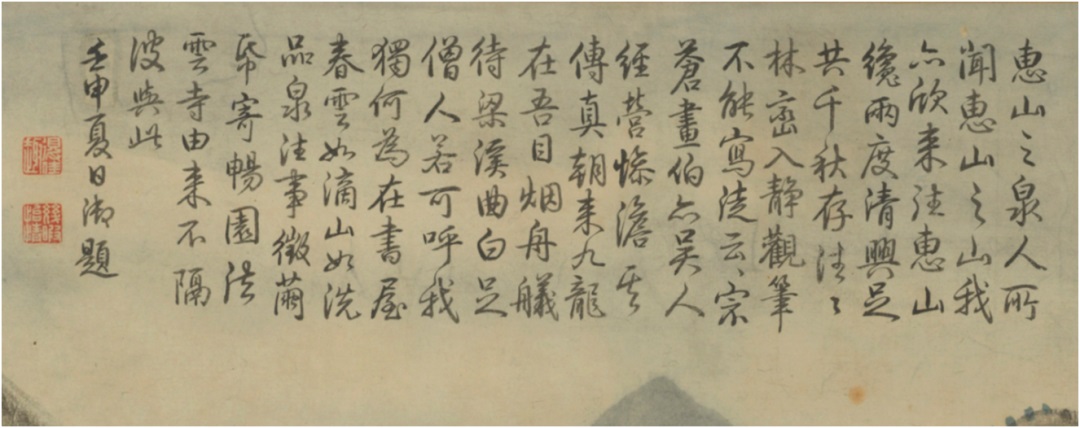 惠山之泉人所
聞惠山之山我
亦欣来往惠山
纔兩度清興足
共千秋存往〻
林巒入靜觀筆
不能寫徒云〻宗
蒼畫伯亦吴人
經營慘澹其
傳真朝来九龍
在吾目烟舟艤
待梁溪曲白足
僧人若可呼我
獨何為在書屋
春雲如滴山如洗
品泉往事徵繭
帋寄暢園法
雲寺由来不隔
波與此
壬申夏日御題